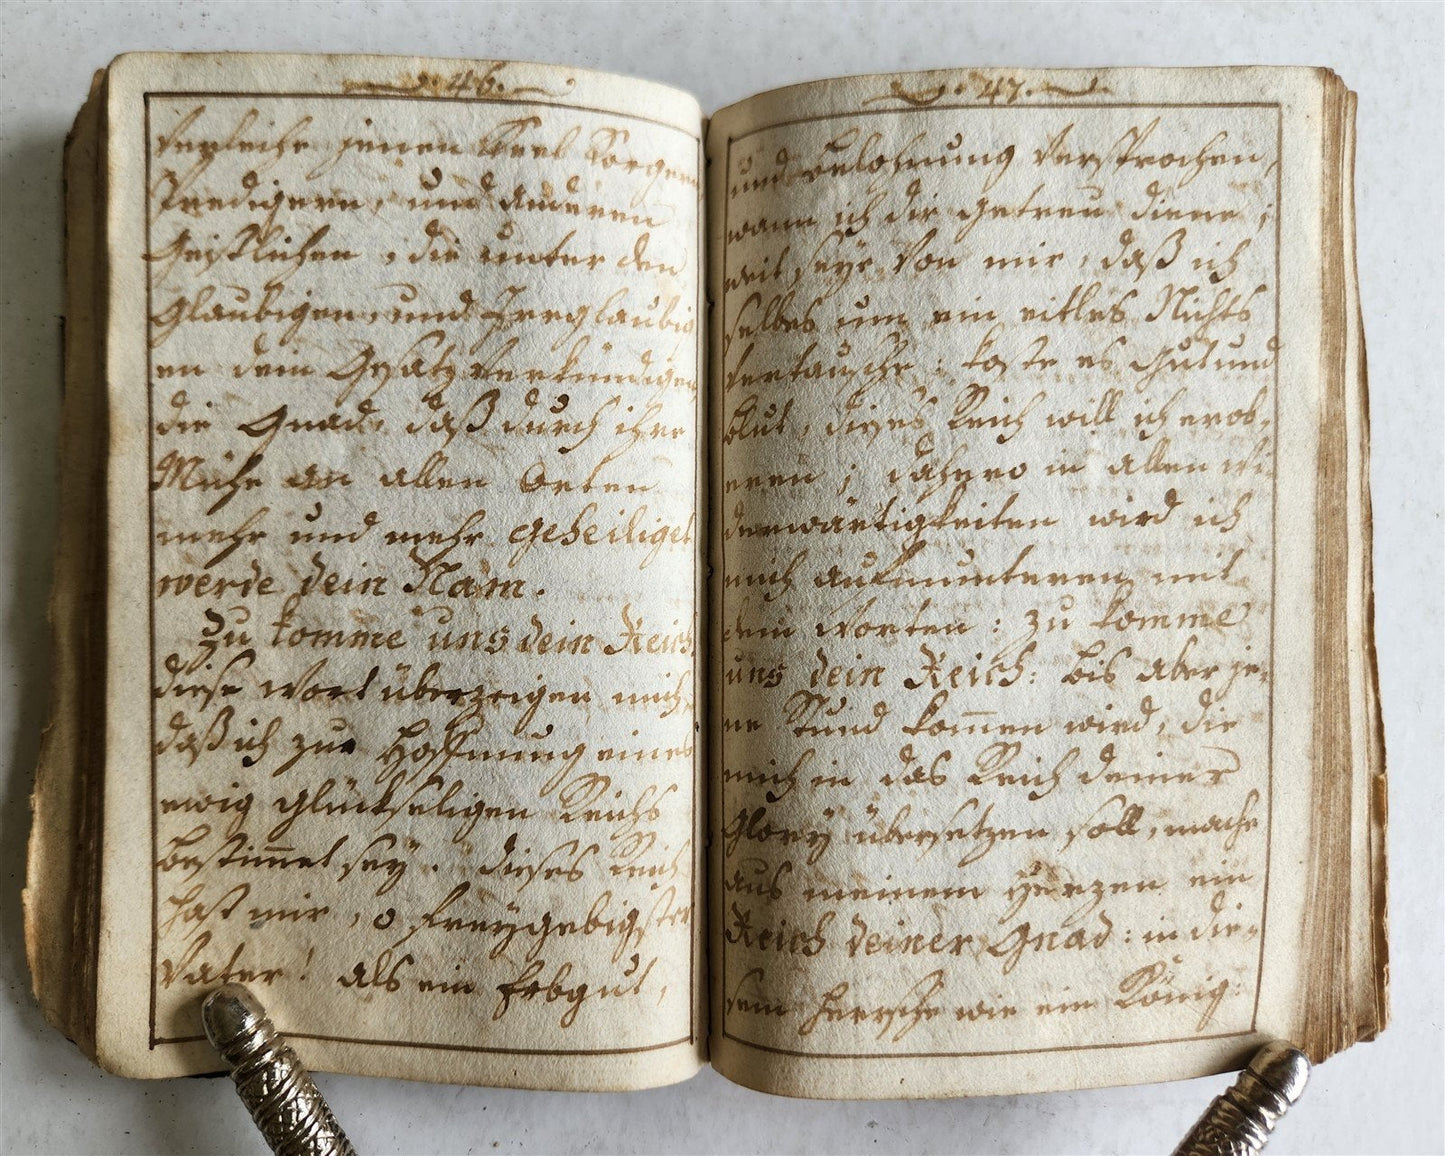 46.
verleihe jenen Seel Sorgern,
Predigern, und anderen
Geistlichen, die unter den
Glaubigen, und Irrglaubig
en dein Gesatz verkündigen
die Gnad, daß durch ihre
Mühe an allen Orten
mehr und mehr geheiliget
werde dein Nam.
Zu komme uns dein Reich,
diese Wort überzeigen mich,
daß ich zur Hoffnung eines
ewig glückseligen Reichs
bestim̄et seÿ. dieses Reich
hast mir, o freÿgebigster
Vater! als ein Erbgut,
47.
und belohnung versprochen,
wann ich dir getreu diene;
weit seÿe von mir, daß ich
selbes um ein eitles Nichts
vertausche: koste es Gut und
blut, dieses Reich will ich erob-
eren; dahero in allen wi-
derwärtigkeiten wird ich
mich aufmunteren mit
dein worten: zu komme
uns dein Reich: bis aber je-
ne Stund kom̄en wird, die
mich in das Reich deiner
Glorÿ übersetzen soll, mache
aus meinem Herzen ein
Reich deiner Gnad: in die-
sem herrsche wie ein König: